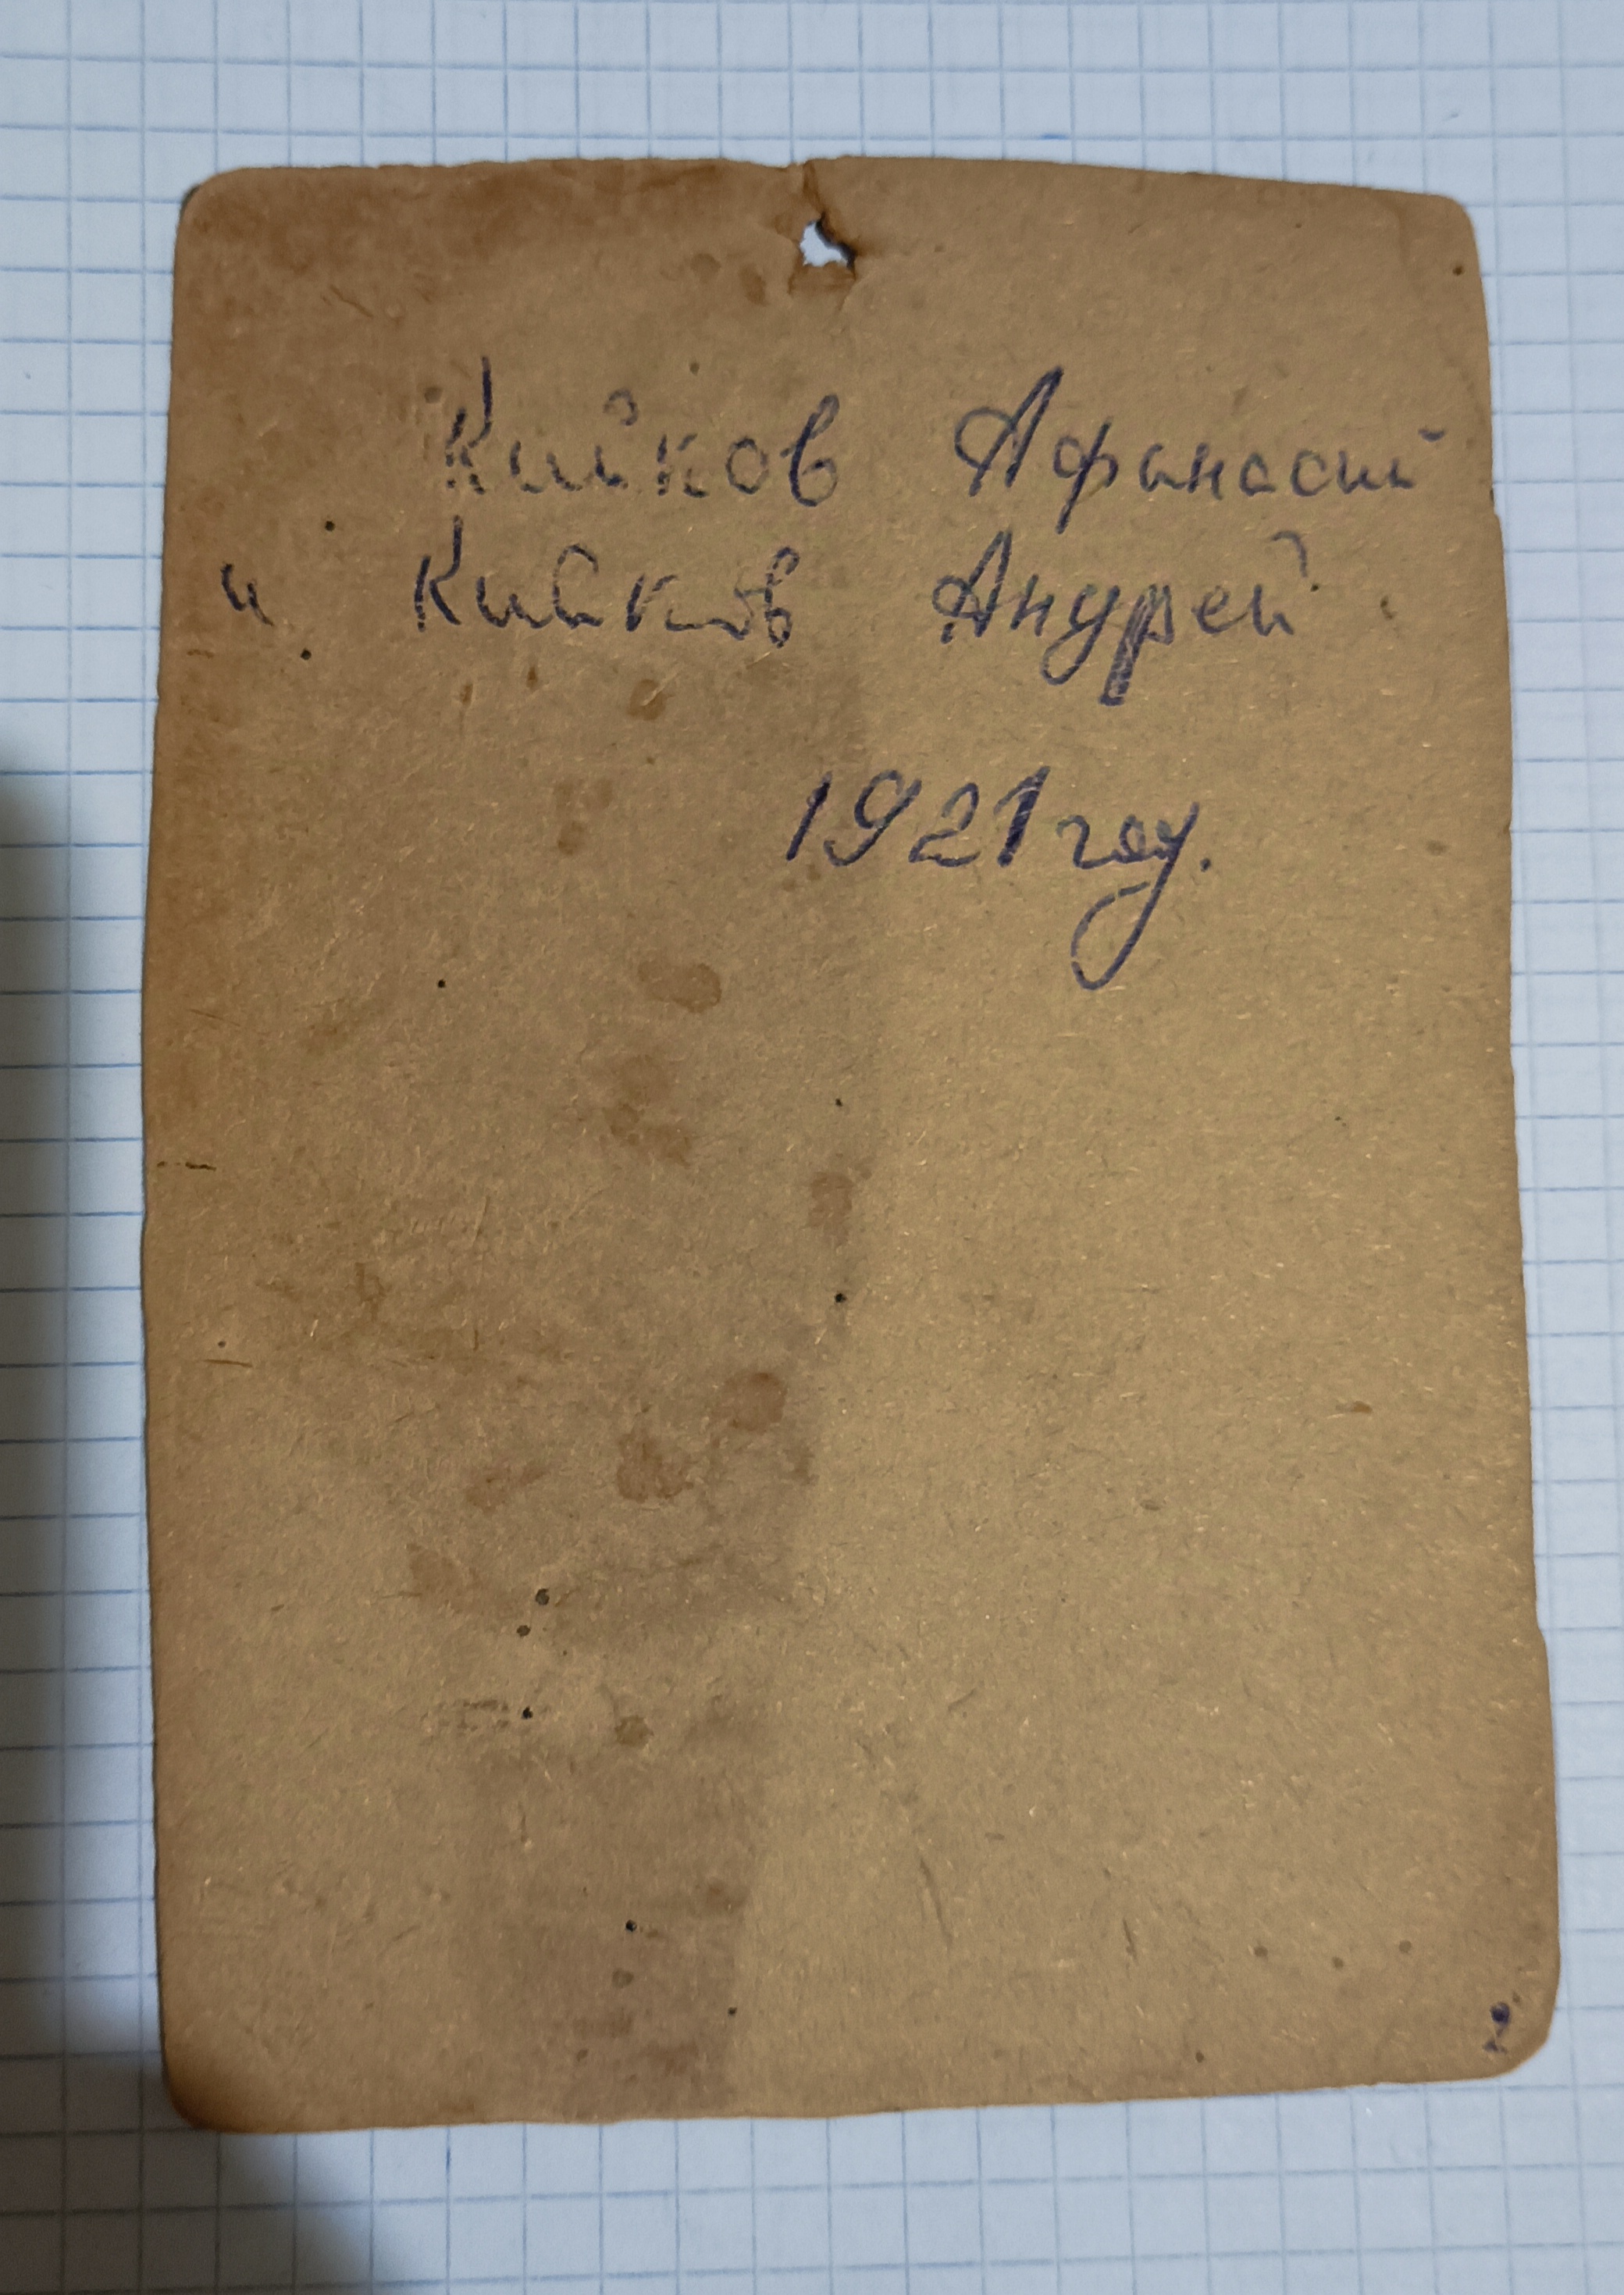 Кийков Афанасий
и Кийков Андрей
1921 году.